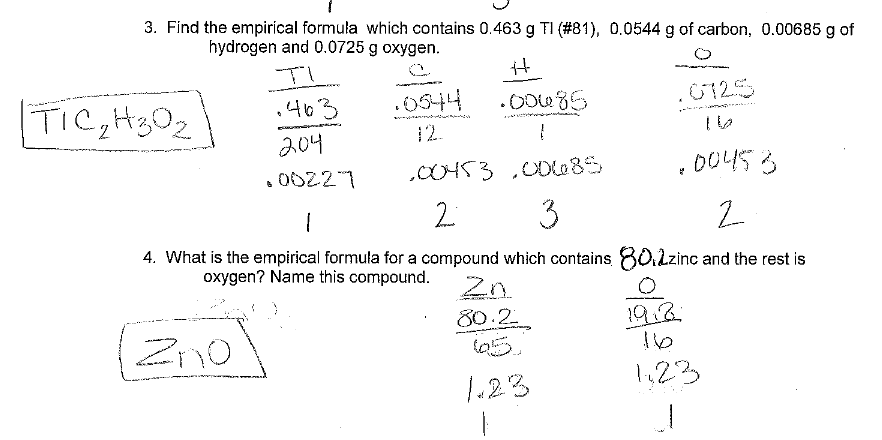 3. Find the empirical formula which contains 0.463 g Tl (#81), 0.0544 g of carbon, 0.00685 g of
hydrogen and 0.0725 g oxygen.
Tl C H O
.463 .0544 .00685 .0725
204 12 1 16
.00227 .00453 .00685 .00453
1 2 3 2
TlC₂H₃O₂
4. What is the empirical formula for a compound which contains 80.2 zinc and the rest is
oxygen? Name this compound.
Zn O
80.2 19.8
65 16
1.23 1.23
1 1
ZnO